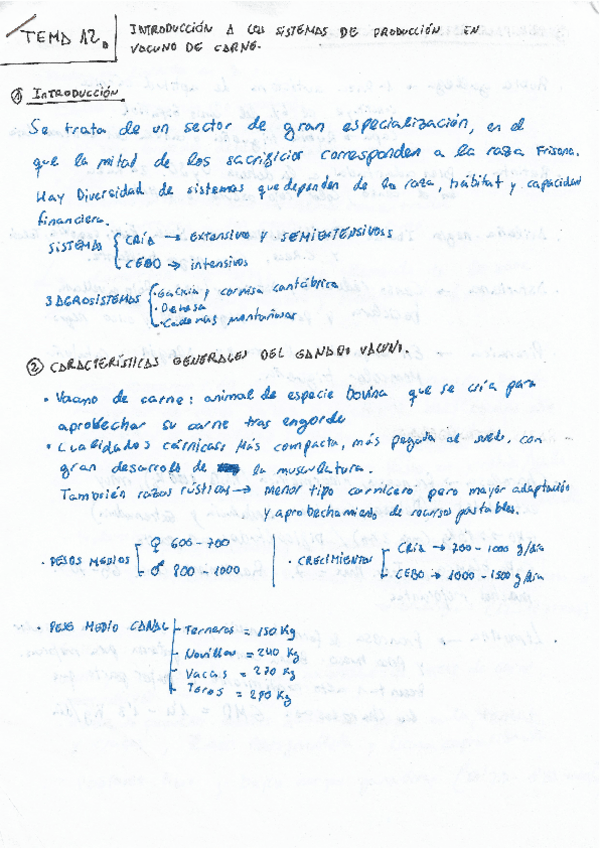 TEMA 12.
INTRODUCCIÓN A LOS SISTEMAS DE PRODUCCIÓN EN
VACUNO DE CARNE.
① INTRODUCCIÓN
Se trata de un sector de gran especialización, en el
que la mitad de los sacrificios corresponden a la raza Frisona.
Hay Diversidad de sistemas que dependen de la raza, hábitat y capacidad
financiera.
SISTEMAS { CRÍA → EXTENSIVO Y SEMIEXTENSIVOS
CEBO → intensivos
3 AGROSISTEMAS { · Galicia y cornisa cantábrica
· Dehesa
· Cadenas montañosas
② CARACTERÍSTICAS GENERALES DEL GANADO VACUNO.
· Vacuno de carne: animal de especie bovina que se cría para
aprobechar su carne tras engorde
· Cualidades cárnicas: Más compacta, más pegada al suelo, con
gran desarrollo de la musculatura.
También razas rústicas → menor tipo carnicero pero mayor adaptación
y aprobechamiento de recursos pastables.
· PESOS MEDIOS [ ♀ 600 - 700
♂ 800 - 1000
· CRECIMIENTOS [ CRÍA → 700 - 1000 g/día
CEBO → 1000 - 1500 g/día
· PESO MEDIO CANAL [ Terneros = 150 Kg
Novillos = 240 Kg
Vacas = 270 Kg
Toros = 290 Kg